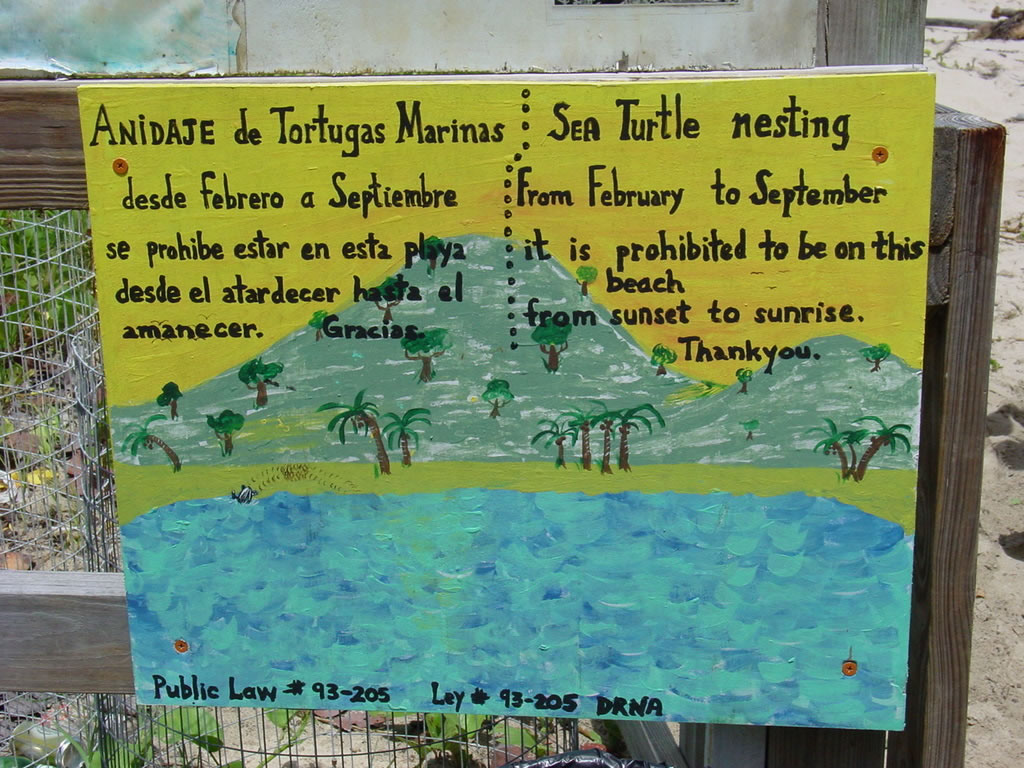 ANIDAJE de Tortugas Marinas
desde febrero a Septiembre
se prohibe estar en esta playa
desde el atardecer hasta el
amanecer. Gracias.
SEA Turtle nesting
From February to September
it is prohibited to be on this
beach
from sunset to sunrise.
Thankyou.
Public Law # 93-205 Ley # 93-205 DRNA